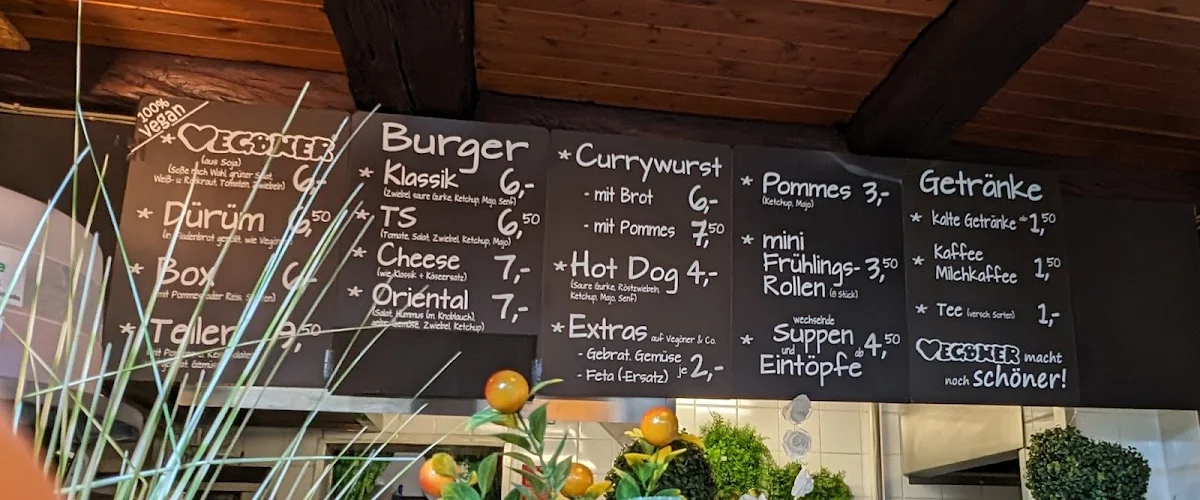 100%
Vegan
* VEGÖNER
(aus Soja)
(Soße nach Wahl, grüner Salat,
Weiß- u. Rotkraut, Tomaten, Zwiebeln) 6,-
* Dürüm 6,50
(in Fladenbrot gerollt, wie Vegöner)
* Box 6,-
(mit Pommes oder Reis, Soßen)
* Teller 9,50
Burger
* Klassik 6,-
(Zwiebel, saure Gurke, Ketchup, Majo, Senf)
* TS 6,50
(Tomate, Salat, Zwiebel, Ketchup, Majo)
* Cheese 7,-
(wie Klassik + Käseersatz)
* Oriental 7,-
(Salat, Hummus (m. Knoblauch),
gebr. Gemüse, Zwiebel, Ketchup)
* Currywurst
- mit Brot 6,-
- mit Pommes 7,50
* Hot Dog 4,-
(Saure Gurke, Röstzwiebeln,
Ketchup, Majo, Senf)
* Extras auf Vegöner & Co.
- Gebrat. Gemüse
- Feta (-Ersatz) je 2,-
* Pommes 3,-
(Ketchup, Majo)
* mini
Frühlings- 3,50
Rollen (8 Stück)
wechselnde
* Suppen
und ab 4,50
Eintöpfe
Getränke
* kalte Getränke ab 1,50
* Kaffee
Milchkaffee 1,50
* Tee (versch. Sorten) 1,-
VEGÖNER macht
noch schöner!